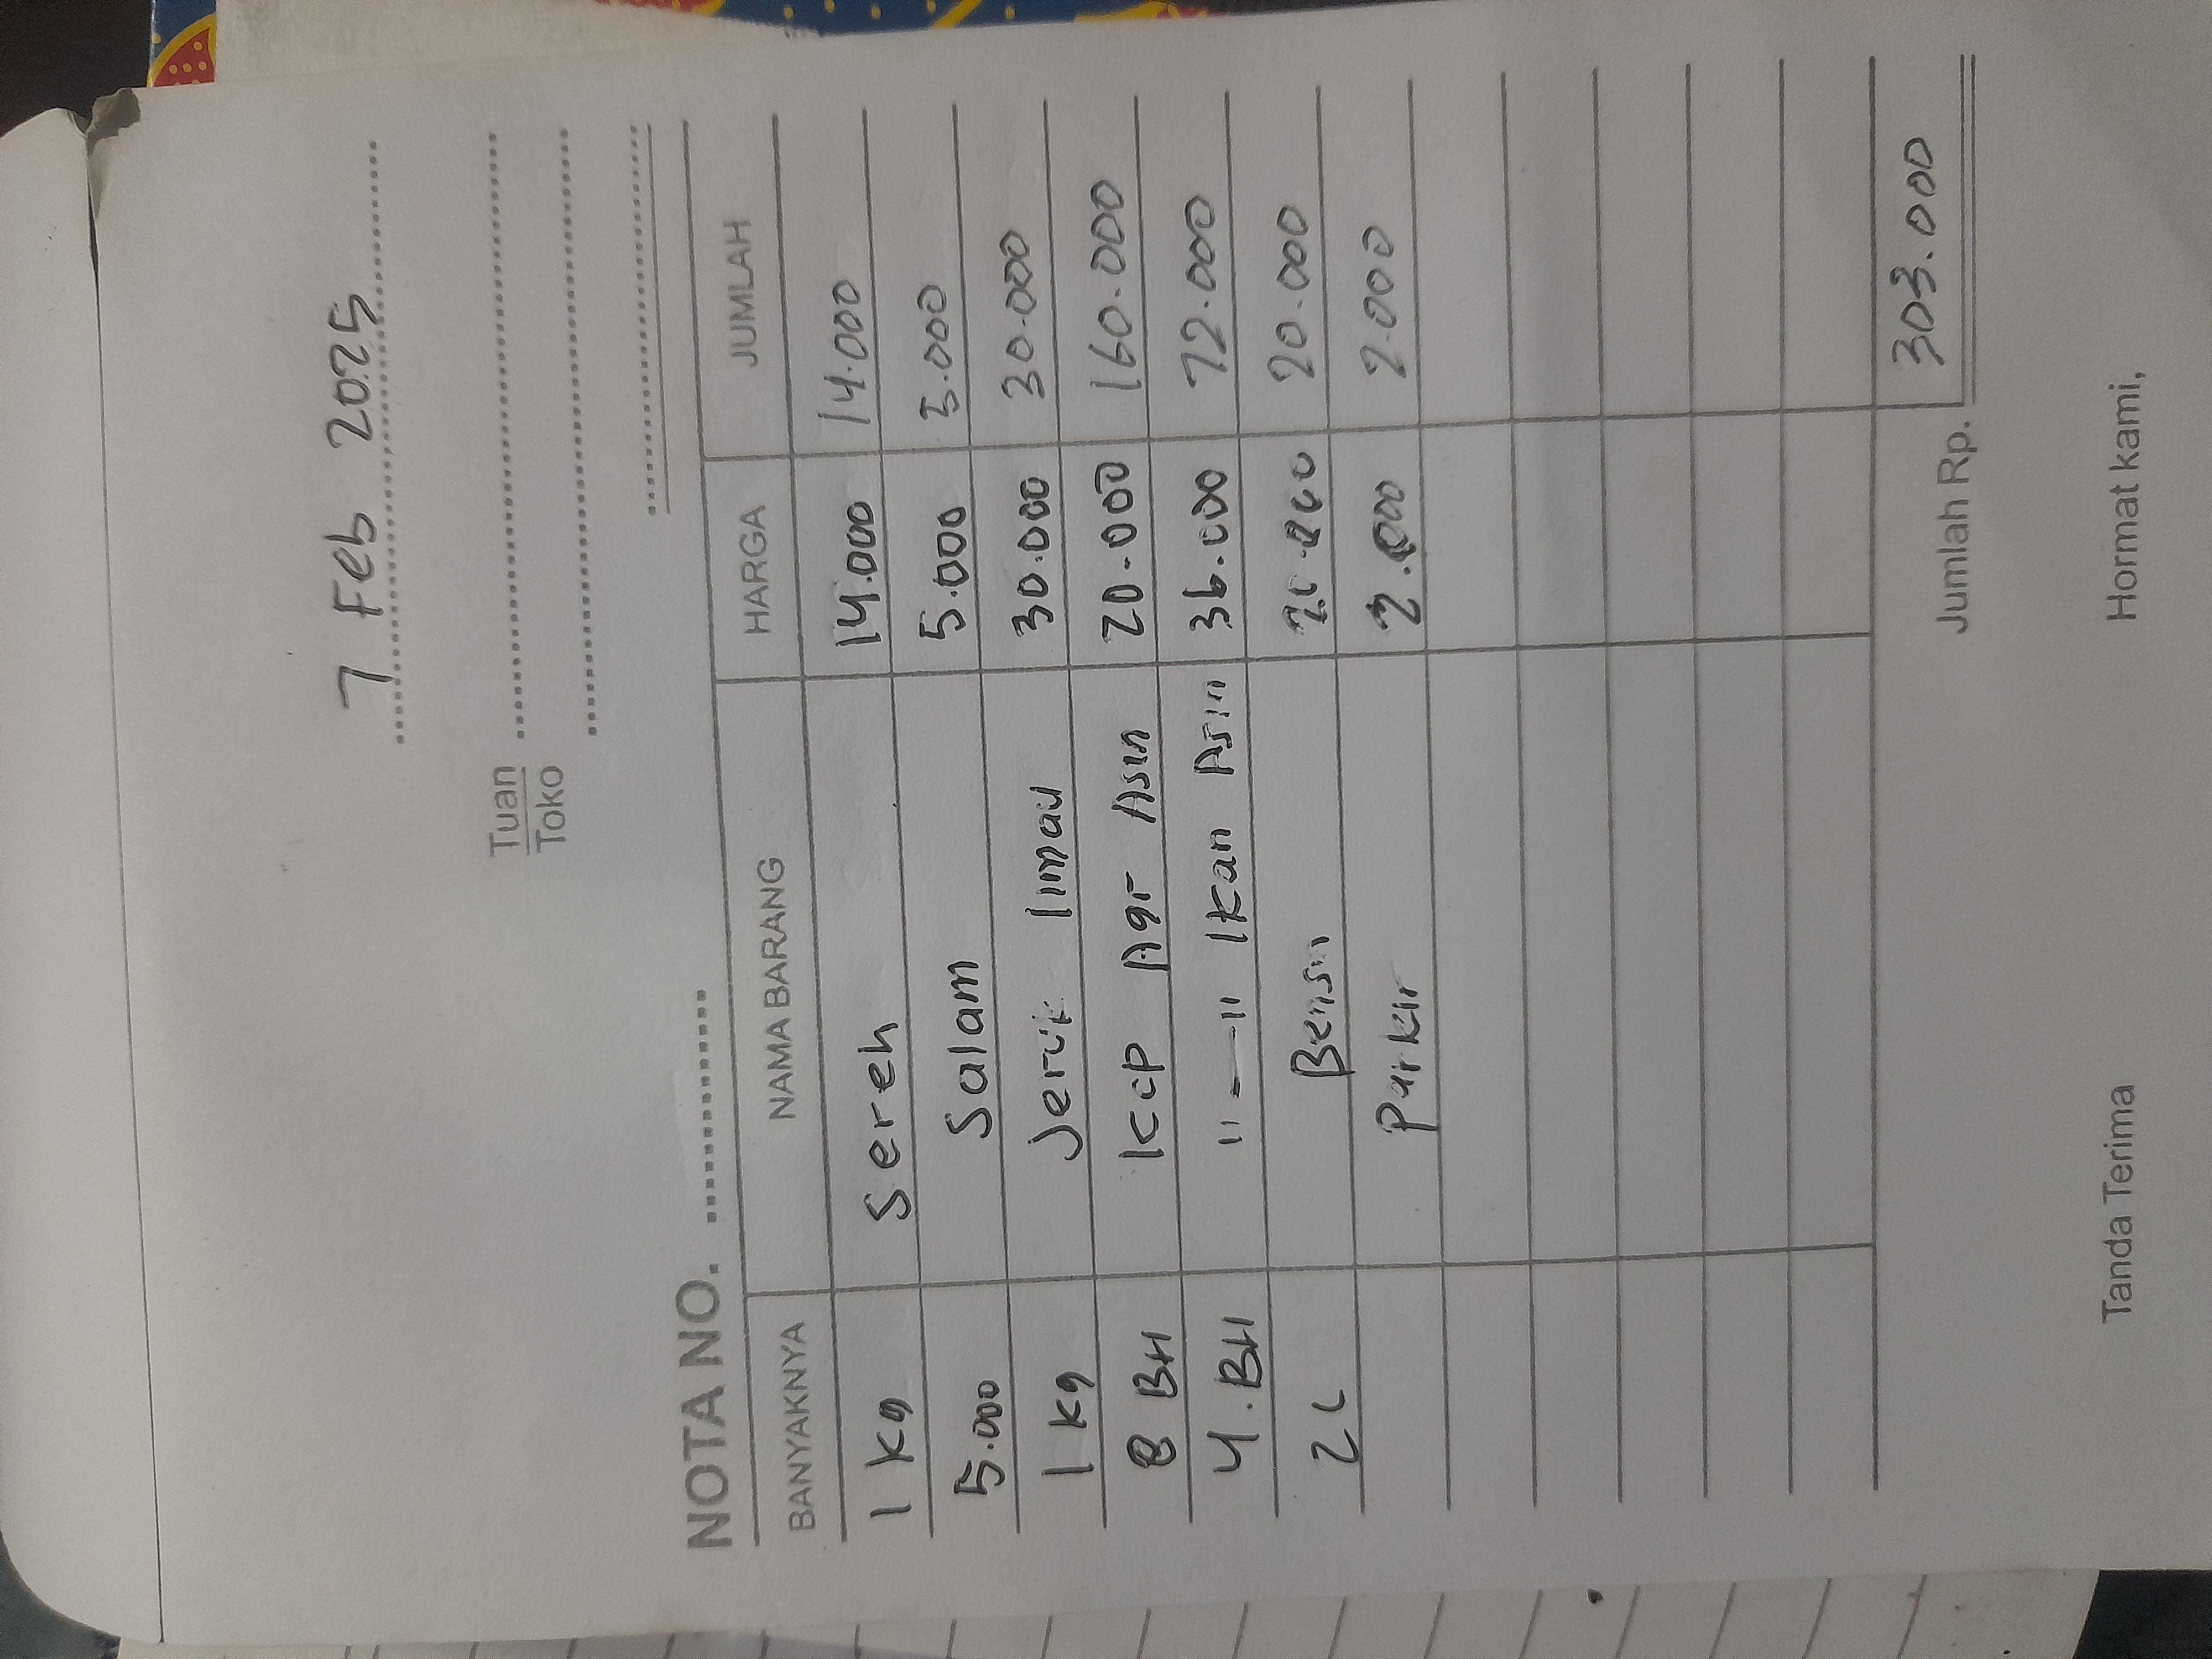 7 Feb 2025
Tuan
Toko
NOTA NO.
BANYAKNYA NAMA BARANG HARGA JUMLAH
1 kg Sereh 14.000 14.000
5.000 Salam 5.000 5.000
1 kg Jeruk limau 30.000 30.000
8 BH kcp Agr Asin 20.000 160.000
4.BH "—" Ikan Asin 36.000 72.000
2L Bensin 20.000 20.000
Parkir 2.000 2.000
Jumlah Rp. 303.000
Tanda Terima Hormat kami,